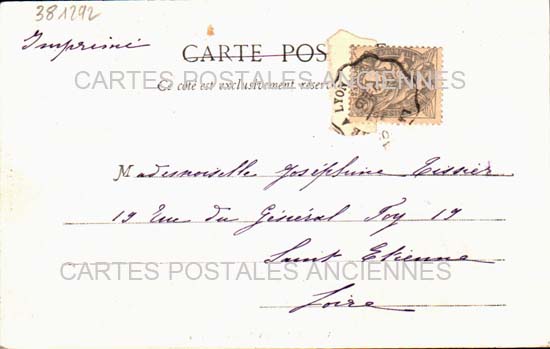 381292
Imprimé
CARTE POS
CARTES POSTALES ANCIENNES
Ce côté est exclusivement réservé
LYON
Mademoiselle Joséphine Tissier
19 Rue du Général Foy 19
Saint Etienne
CARTES POSTALES ANCIENNES
Loire